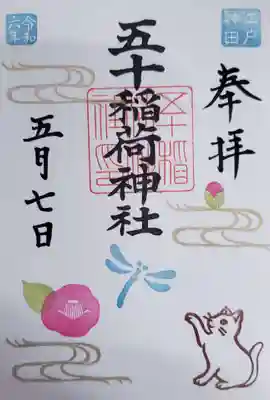 江戸
神田
奉拝
五十稲荷神社
令和
六年
五月七日